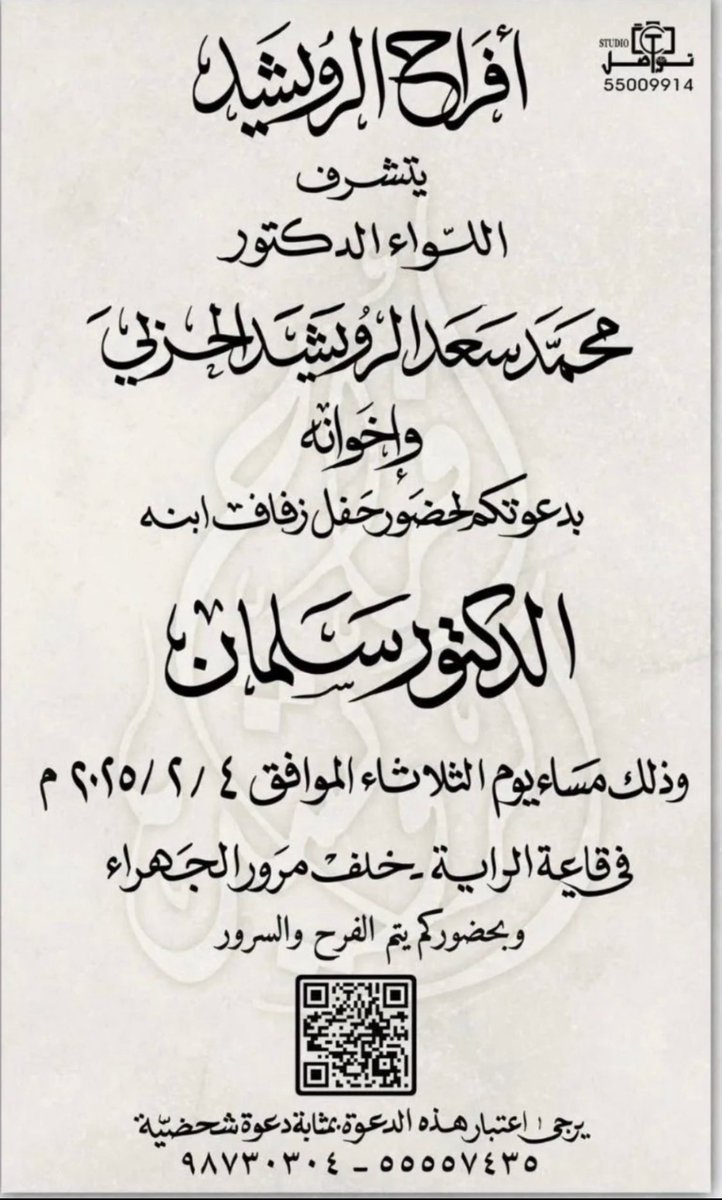 STUDIO
تواصل
55009914
أفراح الرويشيد
يتشرف
اللواء الدكتور
محمد سعد الرويشيد الحزبي
وإخوانه
بدعوتكم لحضور حفل زفاف ابنه
الدكتور سلمان
وذلك مساء يوم الثلاثاء الموافق ٤ /٢ /٢٠٢٥ م
في قاعة الراية - خلف مرور الجهراء
وبحضوركم يتم الفرح والسرور
يرجى اعتبار هذه الدعوة بمثابة دعوة شخضيّة
٩٨٧٣٠٣٠٤ - ٥٥٥٥٧٤٣٥